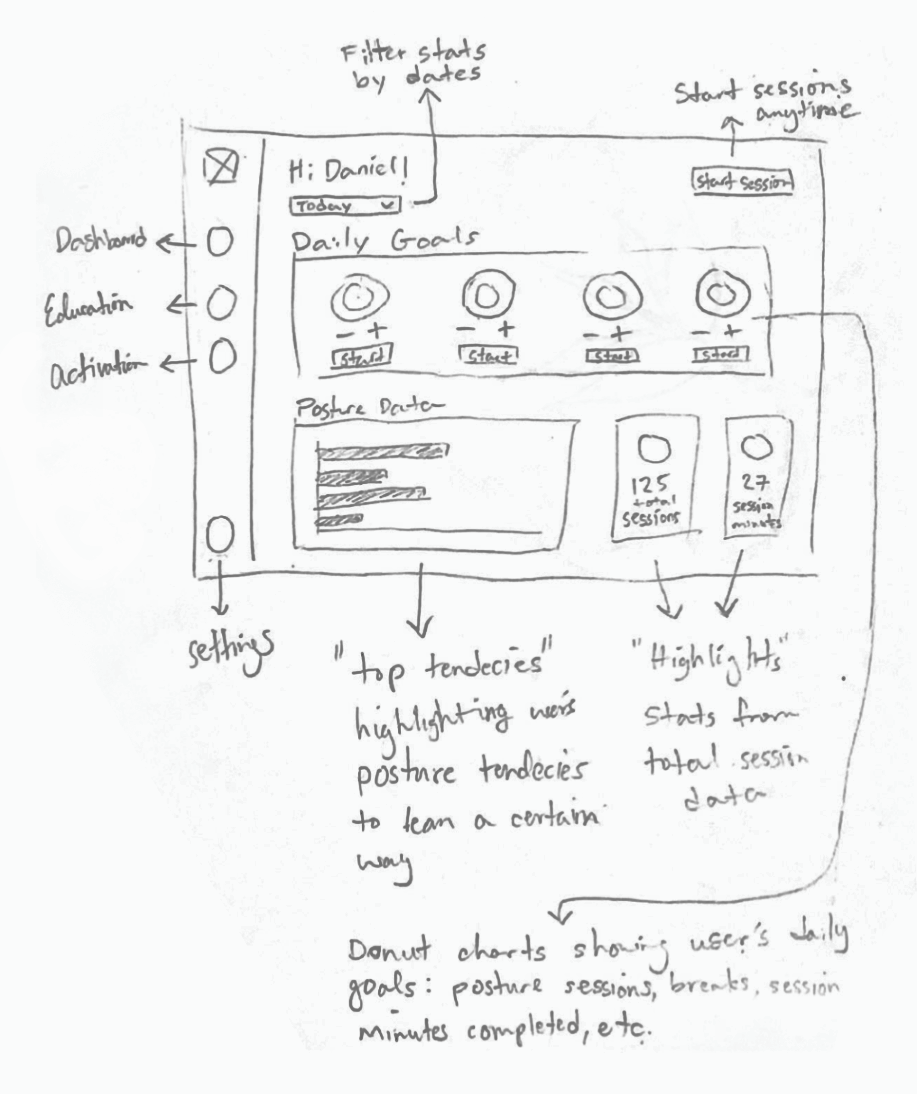 Filter stats
by dates
Start sessions
anytime
Hi Daniel!
Start session
Today
Daily Goals
Dashboard
Education
Activation
- +
- +
- +
- +
Start
Start
Start
Start
Posture Data
125
total
sessions
27
session
minutes
settings
"top tendecies"
highlighting user's
posture tendecies
to lean a certain
way
"Highlights"
Stats from
total session
data
Donut charts showing user's daily
goals: posture sessions, breaks, session
minutes completed, etc.